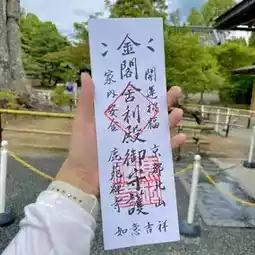 金
開運招福
金閣舎利殿御守護
家内安全
京都北山
鹿苑禅寺
如意吉祥